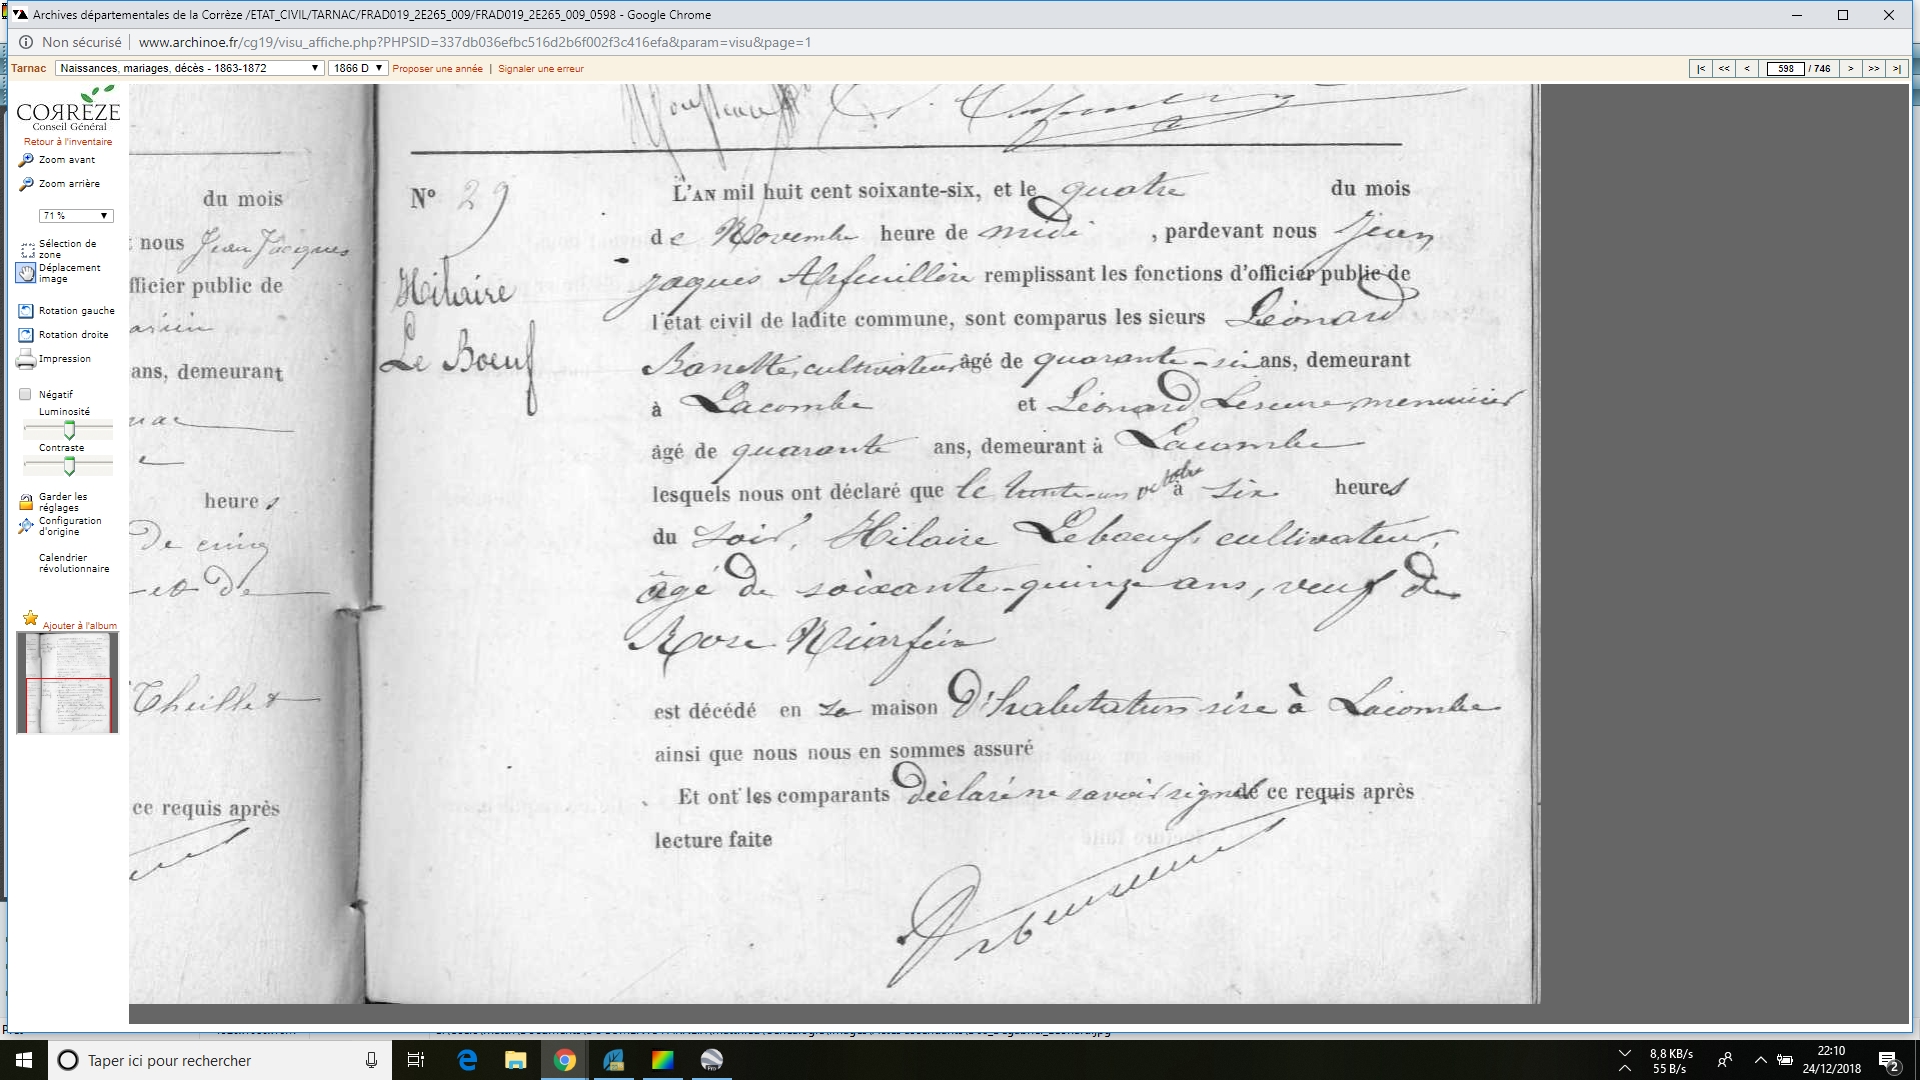 Archives départementales de la Corrèze /ETAT_CIVIL/TARNAC/FRAD019_2E265_009/FRAD019_2E265_009_0598 - Google Chrome
Non sécurisé | www.archinoe.fr/cg19/visu_affiche.php?PHPSID=337db036efbc516d2b6f002f3c416efa&param=visu&page=1
Tarnac Naissances, mariages, décès - 1863-1872 1866 D Proposer une année | Signaler une erreur |< << < 598 / 746 > >> >|
CORRÈZE
Conseil Général
Retour à l'inventaire
Zoom avant
Zoom arrière
71 %
Sélection de
zone
Déplacement
image
Rotation gauche
Rotation droite
Impression
Négatif
Luminosité
Contraste
Garder les
réglages
Configuration
d'origine
Calendrier
révolutionnaire
Ajouter à l'album
du mois
nous Jean Jacques
fficier public de
ans, demeurant
heures
De cinq
et de
Theillet
ce requis après
N° 29
Hilaire
Le Boeuf
L'AN mil huit cent soixante-six, et le quatre du mois
de Novembre heure de midi , pardevant nous Jean
jaques remplissant les fonctions d'officier public de
l'état civil de ladite commune, sont comparus les sieurs Léonard
cultivateur âgé de quarante-six ans, demeurant
à Lacombe et Léonard menuisier
âgé de quarante ans, demeurant à Lacombe
lesquels nous ont déclaré que le trente-un octobre à six heures
du soir, Hilaire Leboeuf, cultivateur,
âgé de soixante-quinze ans, veuf de
Rose
est décédé en sa maison d'habitation sise à Lacombe
ainsi que nous nous en sommes assuré
Et ont les comparants déclaré ne savoir signer de ce requis après
lecture faite
Taper ici pour rechercher
8,8 KB/s
55 B/s
22:10
24/12/2018
2